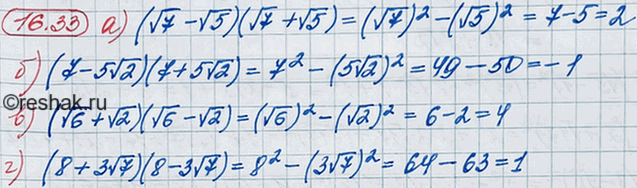 16.33 а) (√7 − √5)(√7 + √5) = (√7)² − (√5)² = 7 − 5 = 2
б) (7 − 5√2)(7 + 5√2) = 7² − (5√2)² = 49 − 50 = −1
©reshak.ru
в) (√6 + √2)(√6 − √2) = (√6)² − (√2)² = 6 − 2 = 4
г) (8 + 3√7)(8 − 3√7) = 8² − (3√7)² = 64 − 63 = 1